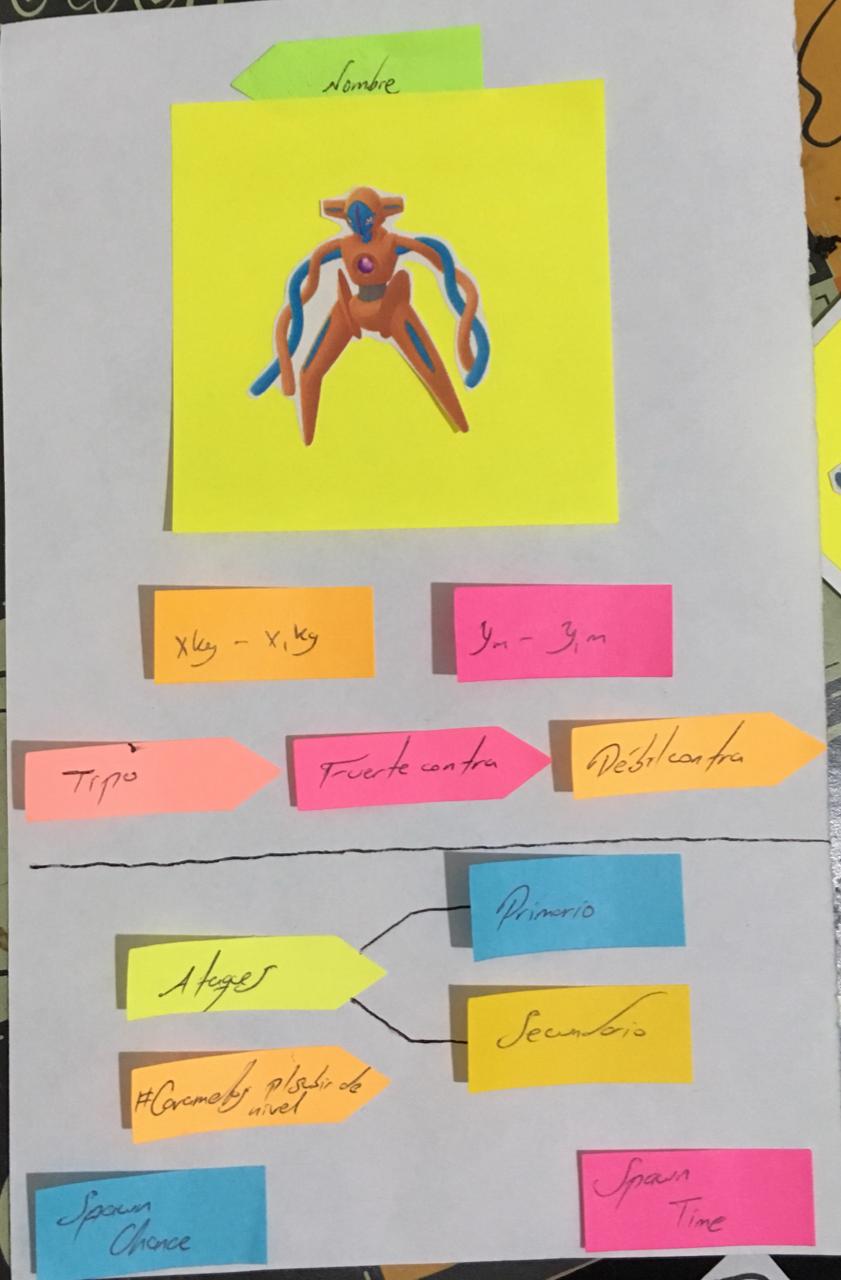 Nombre
xkg - x,kg
ym - y,m
Tipo
Fuerte contra
Débil contra
Primario
Ataques
Secundario
#Caramelos p/subir de
nivel
Spawn
Chance
Spawn
Time